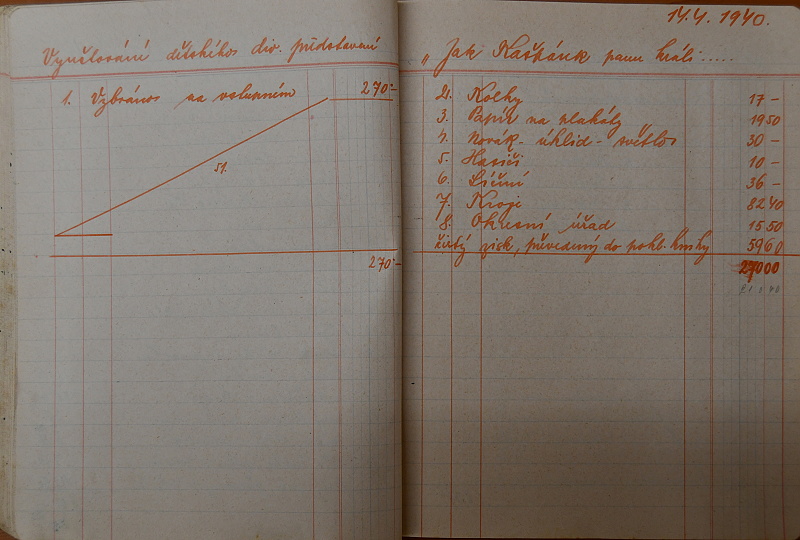 14.4. 1940.
Vyúčtování dětského div. představení
1. Vybráno na vstupném 270·-
51.
270·-
„ Jak Kašpárek panu králi .....
2. Kolky 17 -
3. Papír na plakáty 19 50
4. Novák - úklid - světlo 30 -
5. Hasiči 10 -
6. Líčení 36 -
7. Kroje 82 40
8. Okresní úřad 15 50
čistý zisk, převedený do pokl. knihy 59 60
270 00